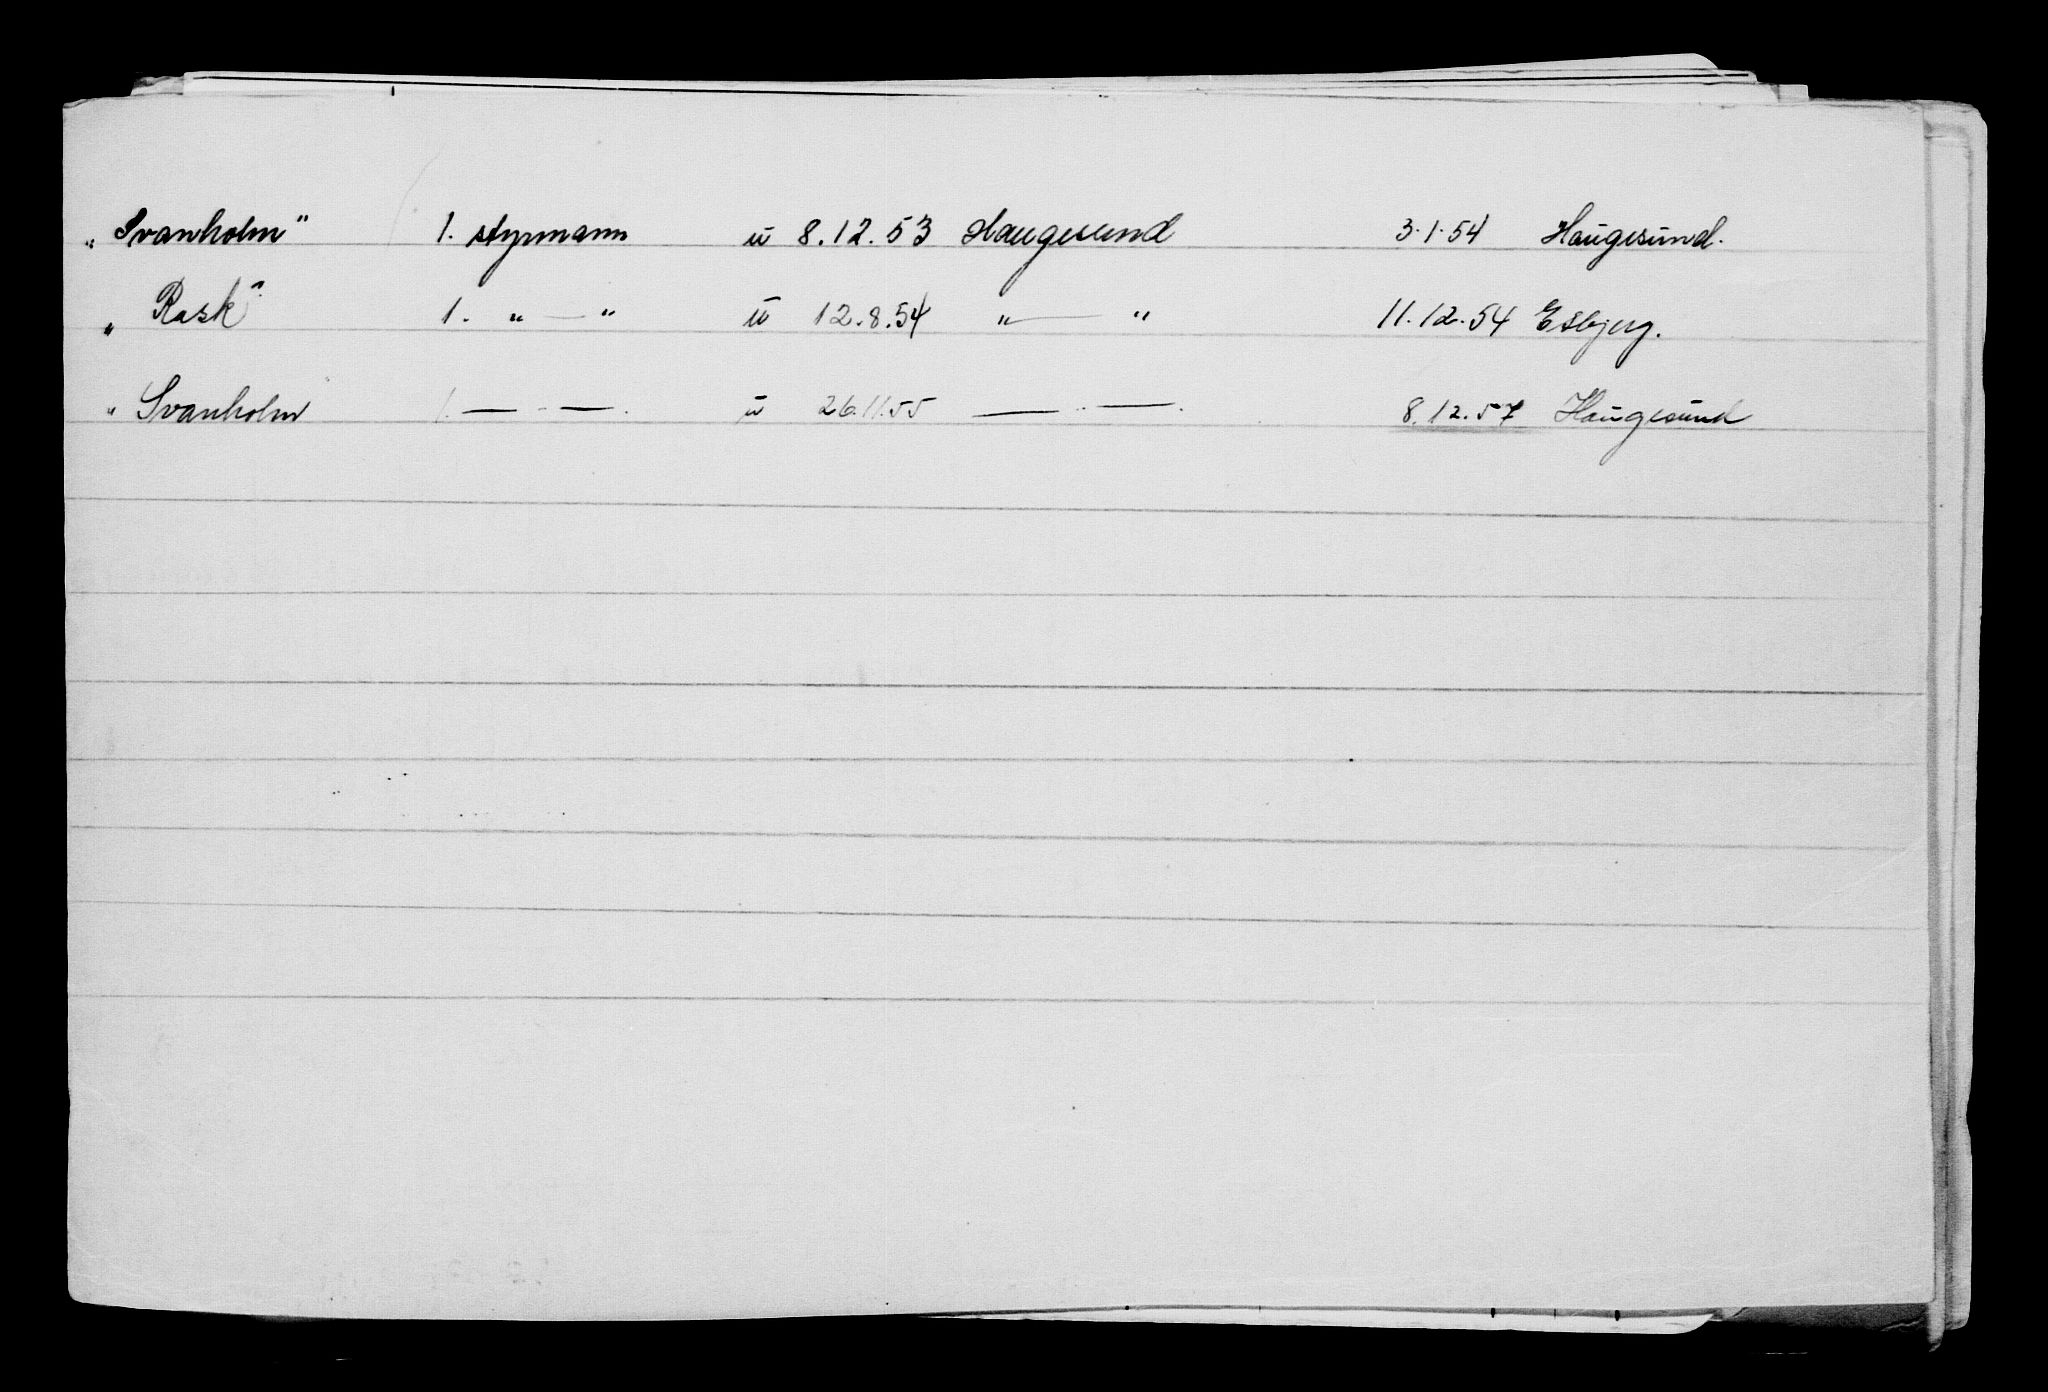 „Svanholm" 1. styrmann u 8.12.53 Haugesund 3.1.54 Haugesund.
„Rask" 1. „ — " u 12.8.54 „ — " 11.12.54 Esbjerg.
„Svanholm 1. — · — . u 26.11.55 — · — . 8.12.57 Haugesund